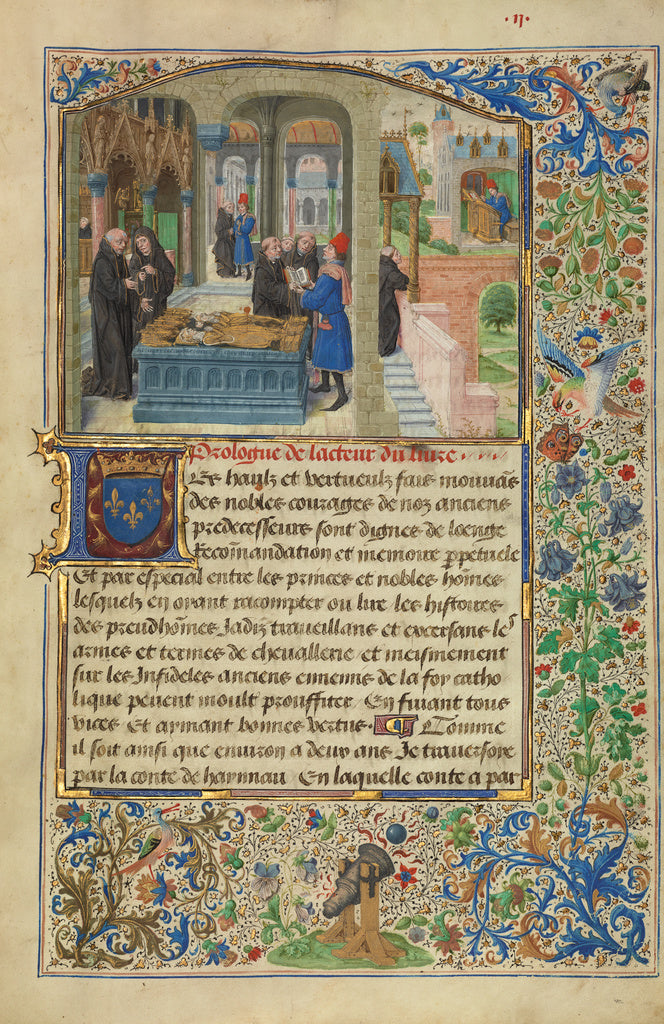 .ii.
Prologue de lacteur du livre
Les haulz et vertueulz fais mouvās
des nobles courages de noz anciens
predecesseurs sont dignes de loenge
Recōmandation et memoire ꝑpetuele
Et par especial entre les princes et nobles hōmes
lesquelz en oyant racompter ou lire les histoires
des preudhōmes Jadiz traveillans et excersans leˢ
armes et termes de chevallerie et meismement
sur les Infideles anciens ennemis de la foy catho
lique pevent moult prouffiter En fuiant tous
vices Et aymant bonnes vertus. Comme
il soit ainsi que environ a deux ans Je traversoye
par la conte de haynnau En laquelle conte a par